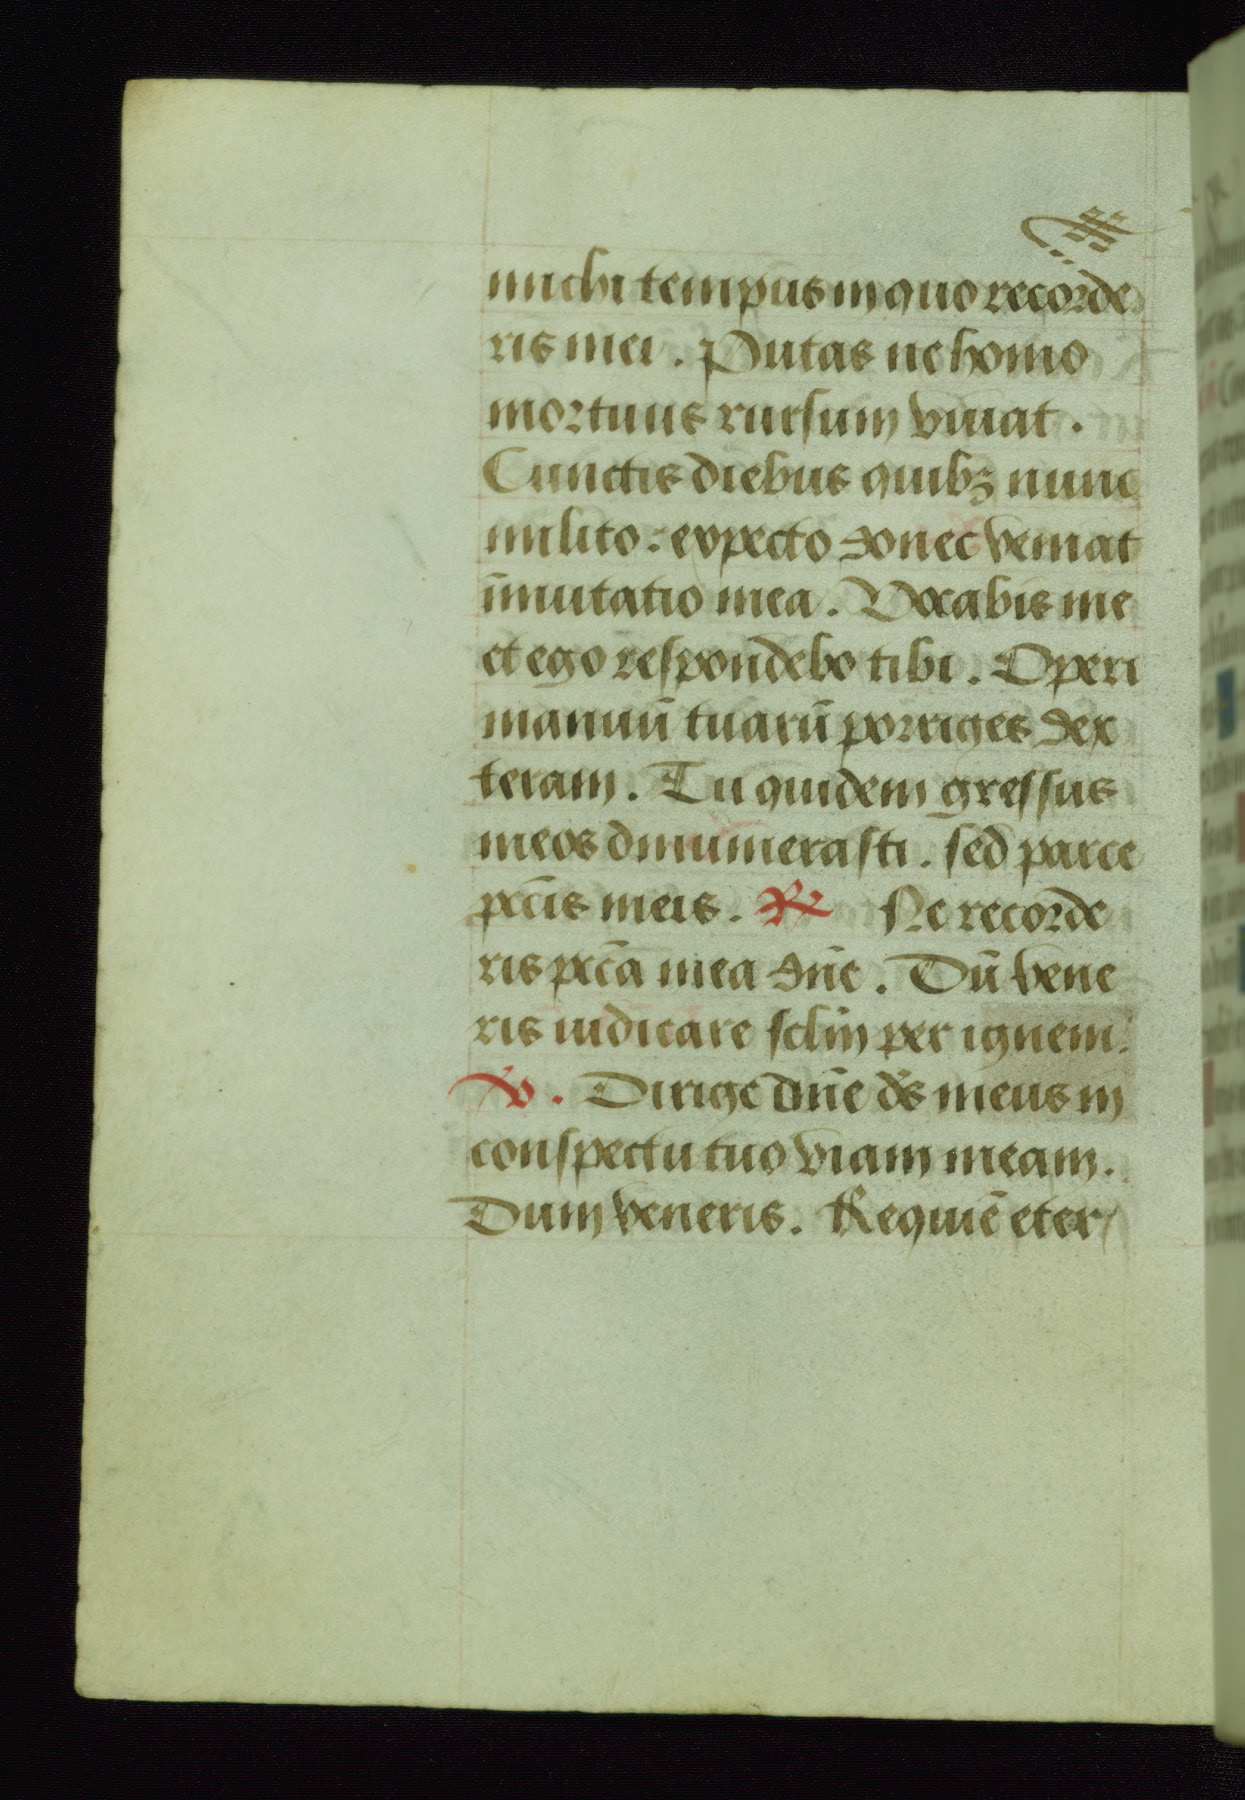 michi tempus in quo recorde
ris mei. Putas ne homo
mortuus rursum viuat.
Cunctis diebus quibꝫ nunc
milito: expecto donec veniat
īmutatio mea. Vocabis me
et ego respondebo tibi. Operi
manuū tuarū porriges dex
teram. Tu quidem gressus
meos dinumerasti. sed parce
pctīs meis. ℟ Ne recorde
ris pctā mea dn̄e. Dū vene
ris iudicare sclm̄ per ignem.
℣. Dirige dn̄e ds̄ meus in
conspectu tuo viam meam.
Dum veneris. Requiē eter